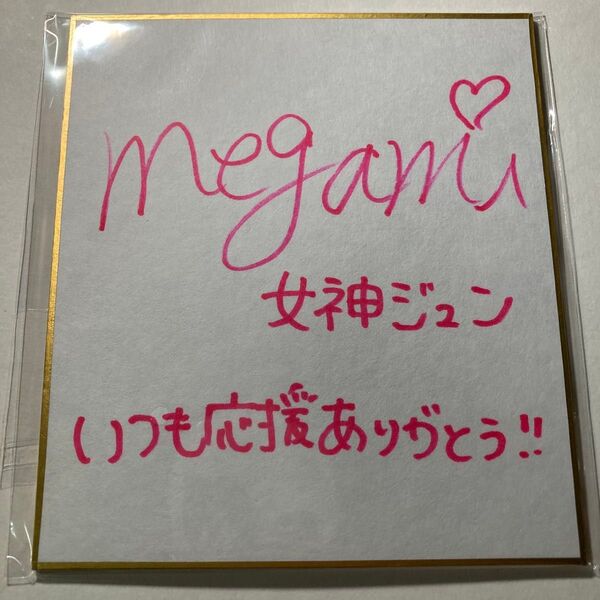 megami
女神ジュン
いつも応援ありがとう!!